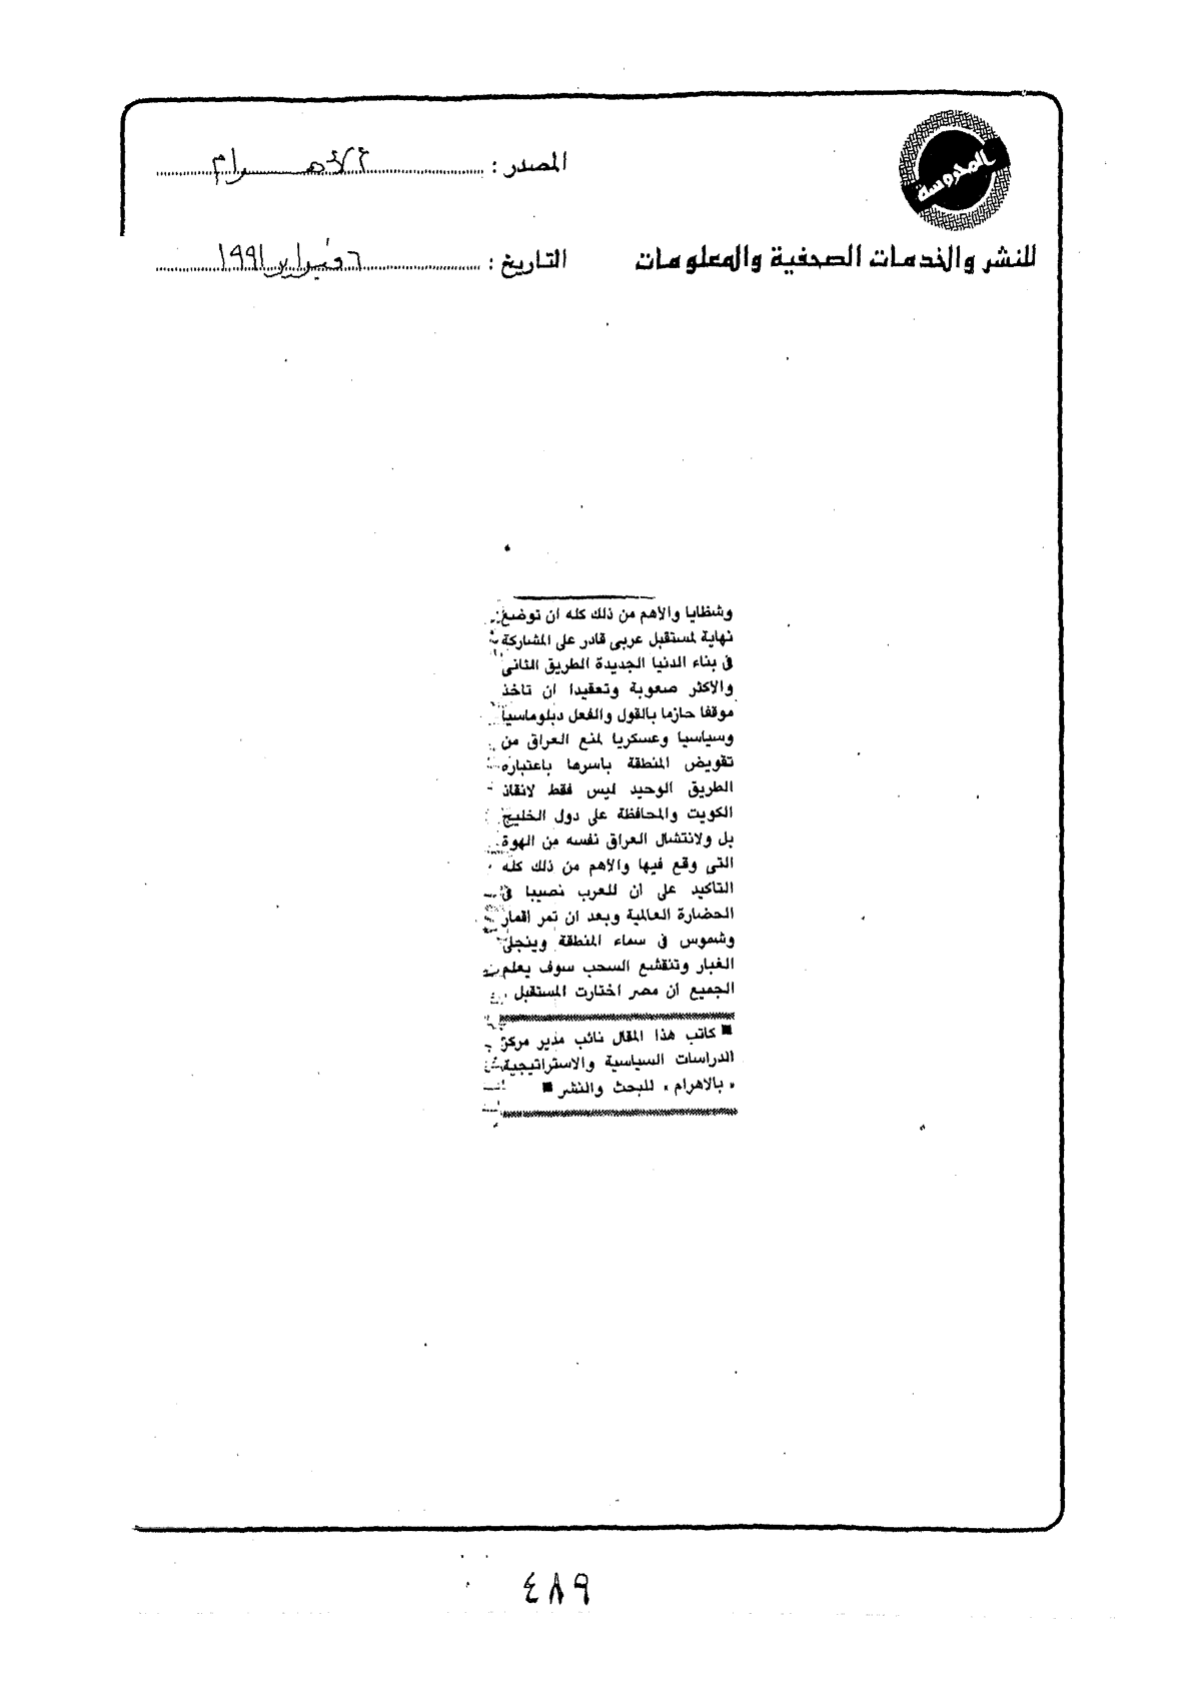 المحروسة
المصدر : الأهرام
للنشر والخدمات الصحفية والمعلومات
التاريخ : ٦ فبراير ١٩٩١
وشظايا والأهم من ذلك كله ان توضع
نهاية لمستقبل عربى قادر على المشاركة
فى بناء الدنيا الجديدة الطريق الثانى
والأكثر صعوبة وتعقيدا ان تأخذ
موقفا حازما بالقول والفعل دبلوماسيا
وسياسيا وعسكريا لمنع العراق من
تقويض المنطقة بأسرها باعتباره
الطريق الوحيد ليس فقط لانقاذ
الكويت والمحافظة على دول الخليج
بل ولانتشال العراق نفسه من الهوة
التى وقع فيها والأهم من ذلك كله
التأكيد على أن للعرب نصيبا فى
الحضارة العالمية وبعد ان تمر اقمار
وشموس فى سماء المنطقة وينجلى
الغبار وتنقشع السحب سوف يعلم
الجميع أن مصر اختارت المستقبل .
■ كاتب هذا المقال نائب مدير مركز
الدراسات السياسية والاستراتيجية
« بالأهرام » للبحث والنشر ■
٤٨٩